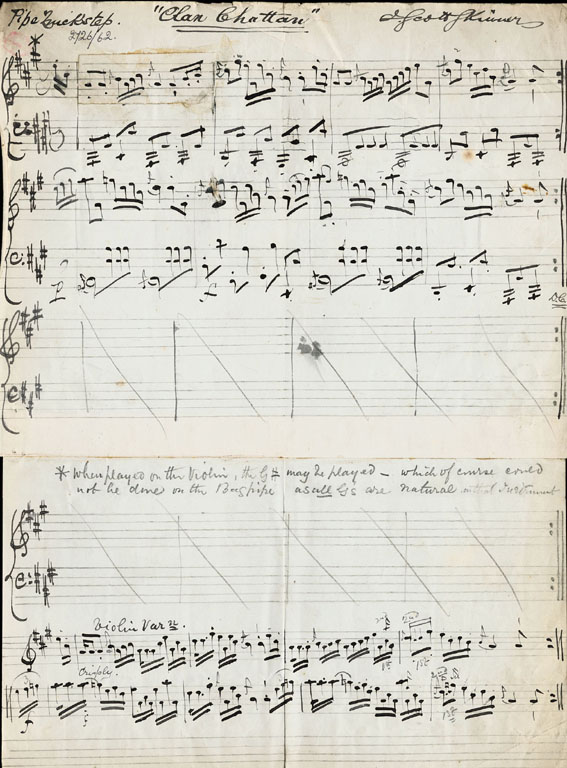 Pipe Quickstep. "Clan Chattan" J Scott Skinner
2726/62.
D.C.
* When played on the Violin, the G# may be played – which of course could
not be done on the Bagpipe as all Gs are natural on that Instrument
Violin Var
Crisply.
1st
1st